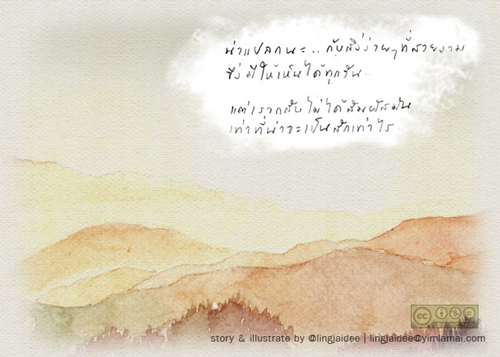 น่าแปลกนะ.. กับสิ่งง่ายๆที่สวยงาม
ซึ่งมีให้เห็นได้ทุกวัน..
แต่เรากลับไม่ได้สัมผัสมัน
เท่าที่น่าจะเป็นสักเท่าไร
cc
story & illustrate by @lingjaidee | lingjaidee@yimlamai.com